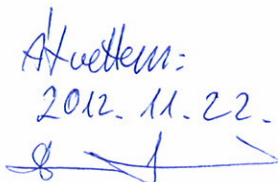 Átvettem:
2012. 11. 22.